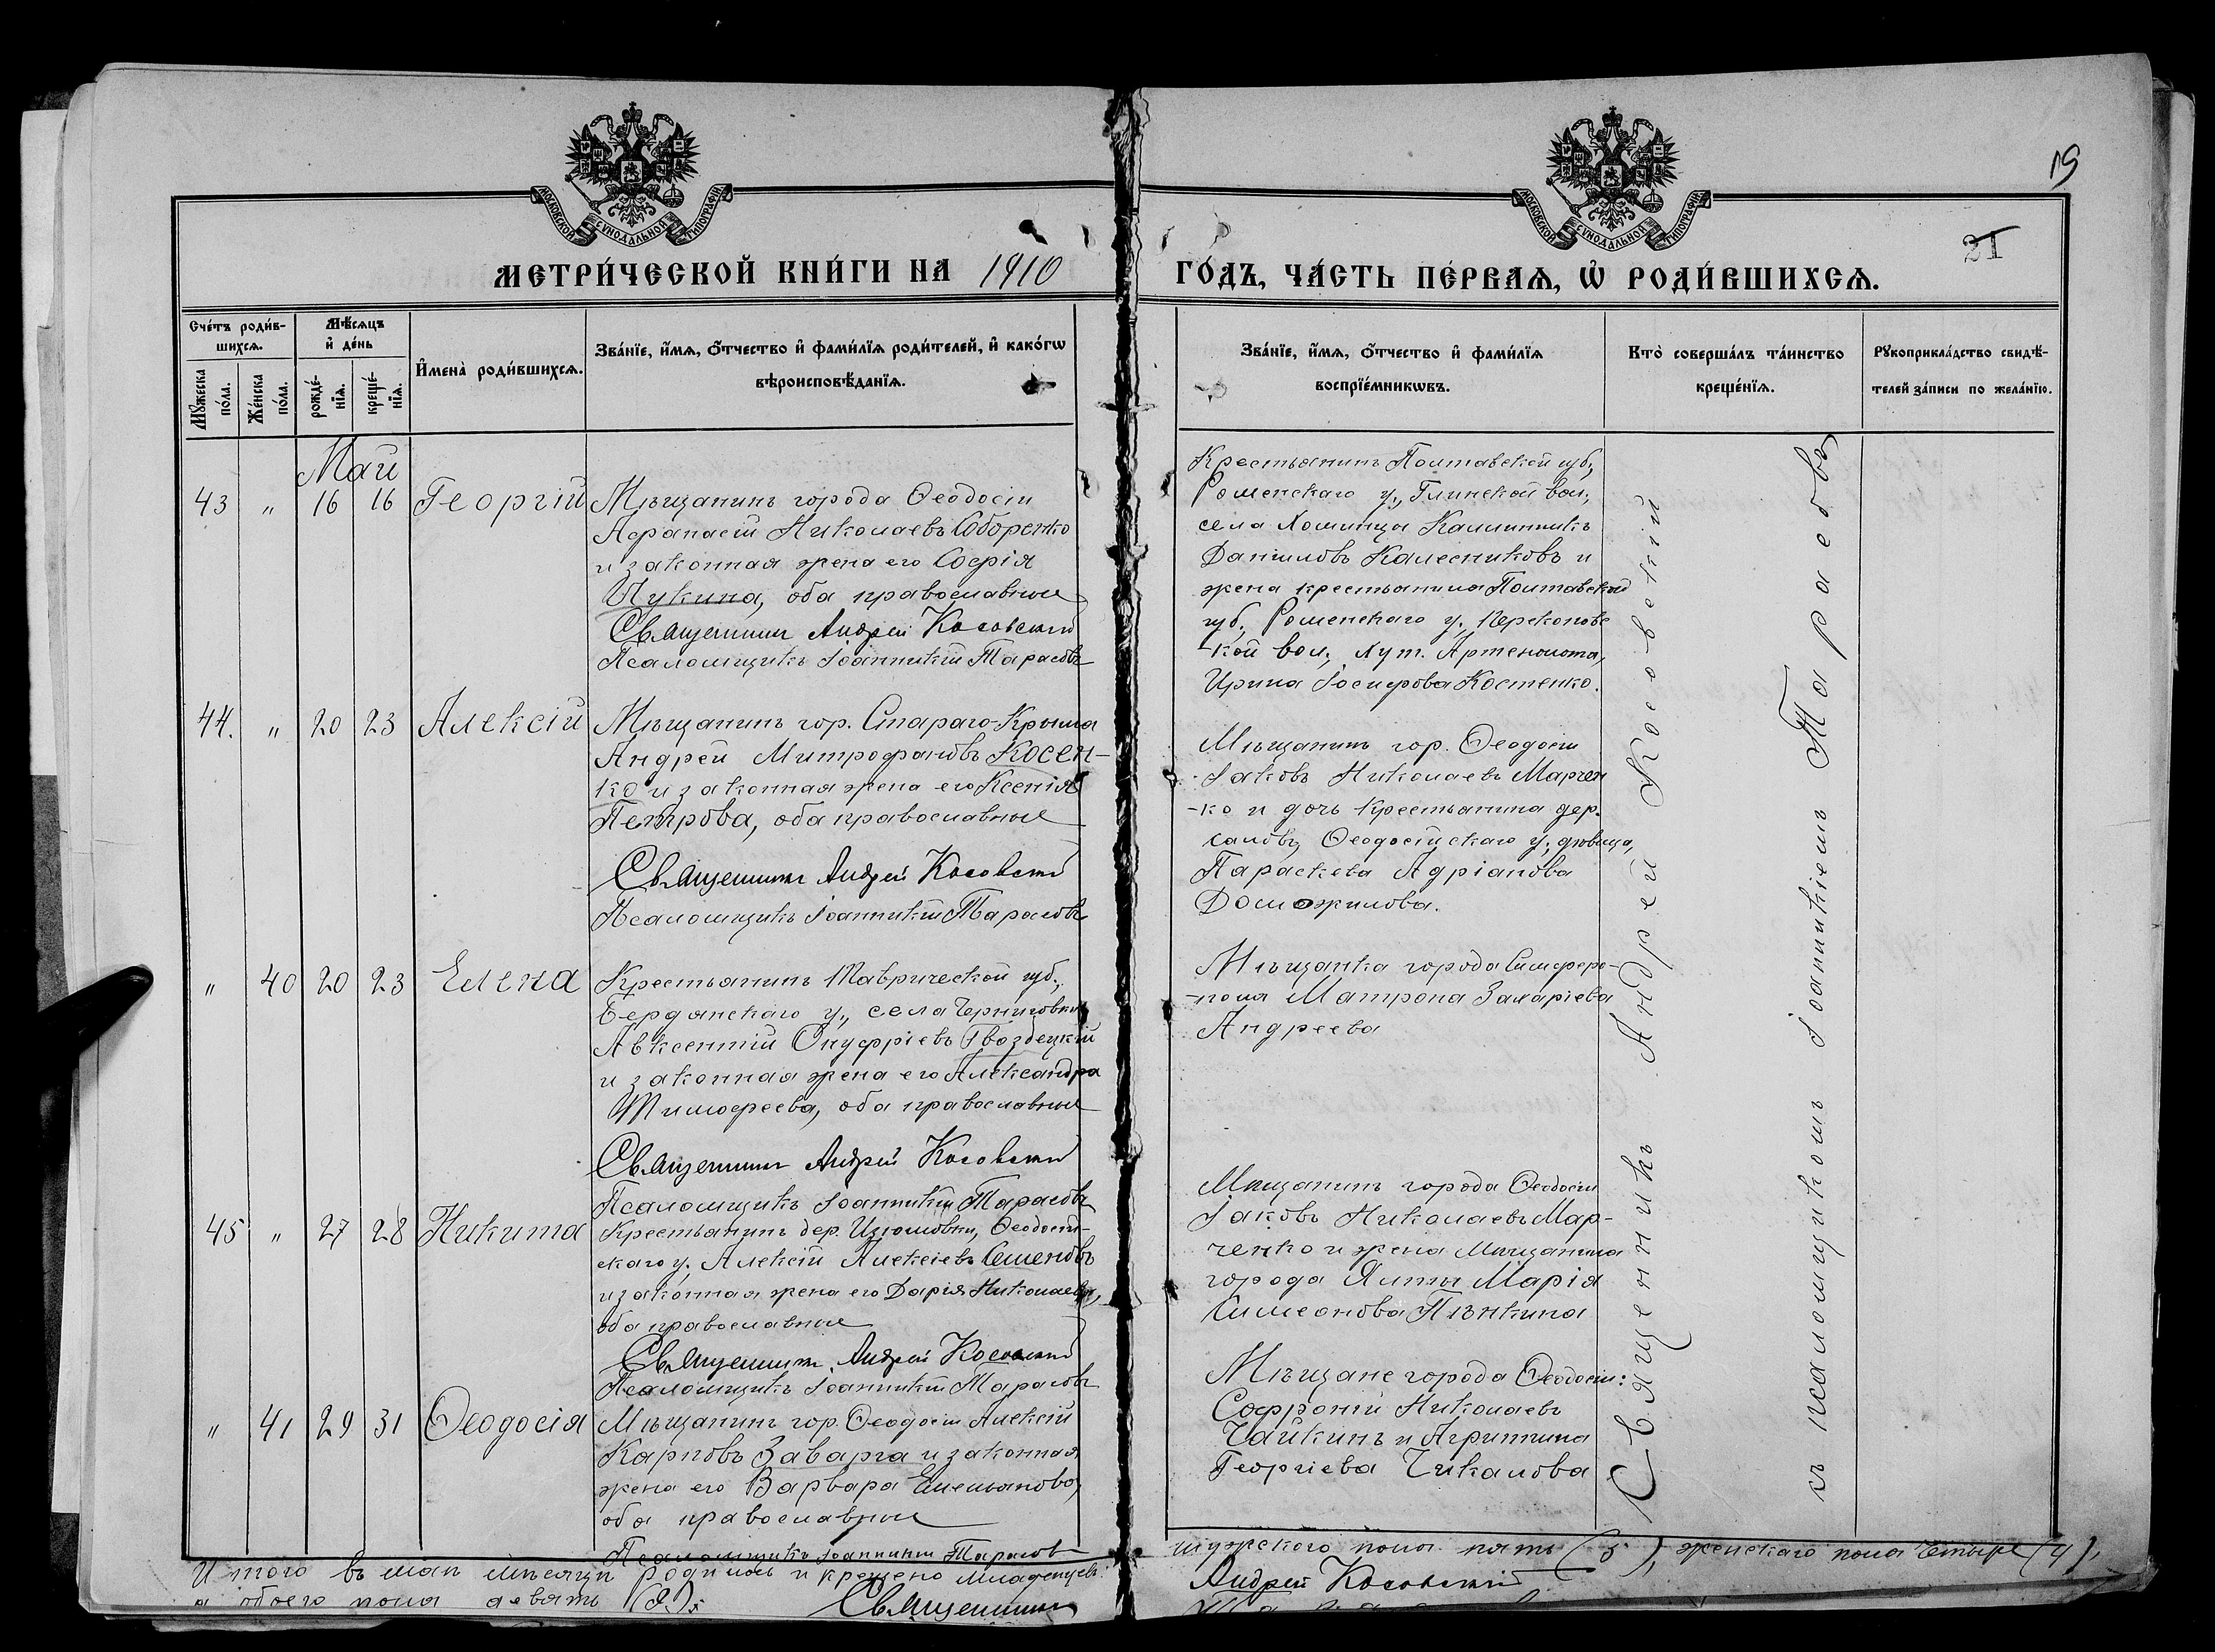 19
21
МОСКОВСКОЙ СУНОДАЛЬНОЙ ТИПОГРАФІИ
МОСКОВСКОЙ СУНОДАЛЬНОЙ ТИПОГРАФІИ
МЕТРИ́ЧЕСКОЙ КНИ́ГИ НА 1910 ГО́ДЪ, ЧА́СТЬ ПЕ́РВАѦ, Ѡ҆ РОДИ́ВШИХСѦ.
Сче́тъ роди́в-
шихсѧ.
Мꙋжеска по́ла.
Же́нска по́ла.
Мѣ́сѧцъ
и҆ де́нь
рожде́-
нїѧ.
креще́-
нїѧ.
И҆мена̀ роди́вшихсѧ.
Зва́нїе, и҆́мѧ, ѻ҆́тчество и҆ фами́лїѧ роди́телей, и҆ како́гѡ
вѣроисповѣ́данїѧ.
Зва́нїе, и҆́мѧ, ѻ҆́тчество и҆ фами́лїѧ
воспрїе́мникѡвъ.
Кто̀ соверша́лъ та́инство
креще́нїѧ.
Рꙋкоприкла́дство свидѣ́-
телей за́писи по жела́нїю.
Май
43 " 16 16 Георгій
Мѣщанинъ города Ѳеодосіи
Аѳанасій Николаевъ Оборенко
и законная жена его Софія
Лукина, оба православные
Священникъ Андрей Косовскій
Псаломщикъ Іоанникій Тарасовъ
Крестьянинъ Полтавской губ.,
Роменскаго у., Глинской вол.,
села Хоминцы Каллиникъ
Даниловъ Калесниковъ и
жена крестьянина Полтавской
губ., Роменскаго у., Перекоповс
-кой вол., хут. Артеполота,
Ирина Іосифова Костенко.
44. " 20 23 Алексій
Мѣщанинъ гор. Стараго-Крыма
Андрей Митрофановъ Косен-
ко и законная жена его Ксенія
Петрова, оба православные
Священникъ Андрей Косовскій
Псаломщикъ Іоанникій Тарасовъ
Мѣщанинъ гор. Ѳеодосіи
Іаковъ Николаевъ Марчен
-ко и дочь крестьянина дер.
Саловъ, Ѳеодосійскаго у., дѣвица,
Параскева Адріанова
Доможилова.
" 40 20 23 Елена
Крестьянинъ Таврической губ.,
Бердянскаго у., села Черниговки
Авксентій Онуфріевъ Гвоздецкій
и законная жена его Александра
Тимоѳеева, оба православные
Священникъ Андрей Косовскій
Псаломщикъ Іоанникій Тарасовъ
Мѣщанка города Симферо-
-поля Матрона Захаріева
Андреева
45 " 27 28 Никита
Крестьянинъ дер. Изюмовки, Ѳеодосій-
скаго у. Алексій Алексіевъ Семеновъ
и законная жена его Дарія Николаева,
оба православные
Священникъ Андрей Косовскій
Псаломщикъ Іоанникій Тарасовъ
Мѣщанинъ города Ѳеодосіи
Іаковъ Николаевъ Мар-
ченко и жена мѣщанина
города Ялты Марія
Симеонова Пѣнкина
" 41 29 31 Ѳеодосія
Мѣщанинъ гор. Ѳеодосіи Алексій
Карповъ Заварга и законная
жена его Варвара Емельянова,
оба православные
Псаломщикъ Іоанникій Тарасовъ
Мѣщане города Ѳеодосіи:
Софроній Николаевъ
Чайкинъ и Агриппина
Георгіева Чикалова
Священникъ Андрей Косовскій
съ псаломщикомъ Іоанникіемъ Тарасовымъ
Итого въ маѣ мѣсяцѣ родилось и крещено младенцевъ: мужского пола пять (5), женскаго пола четыре (4),
а обоего пола девять (9).
Священникъ Андрей Косовскій